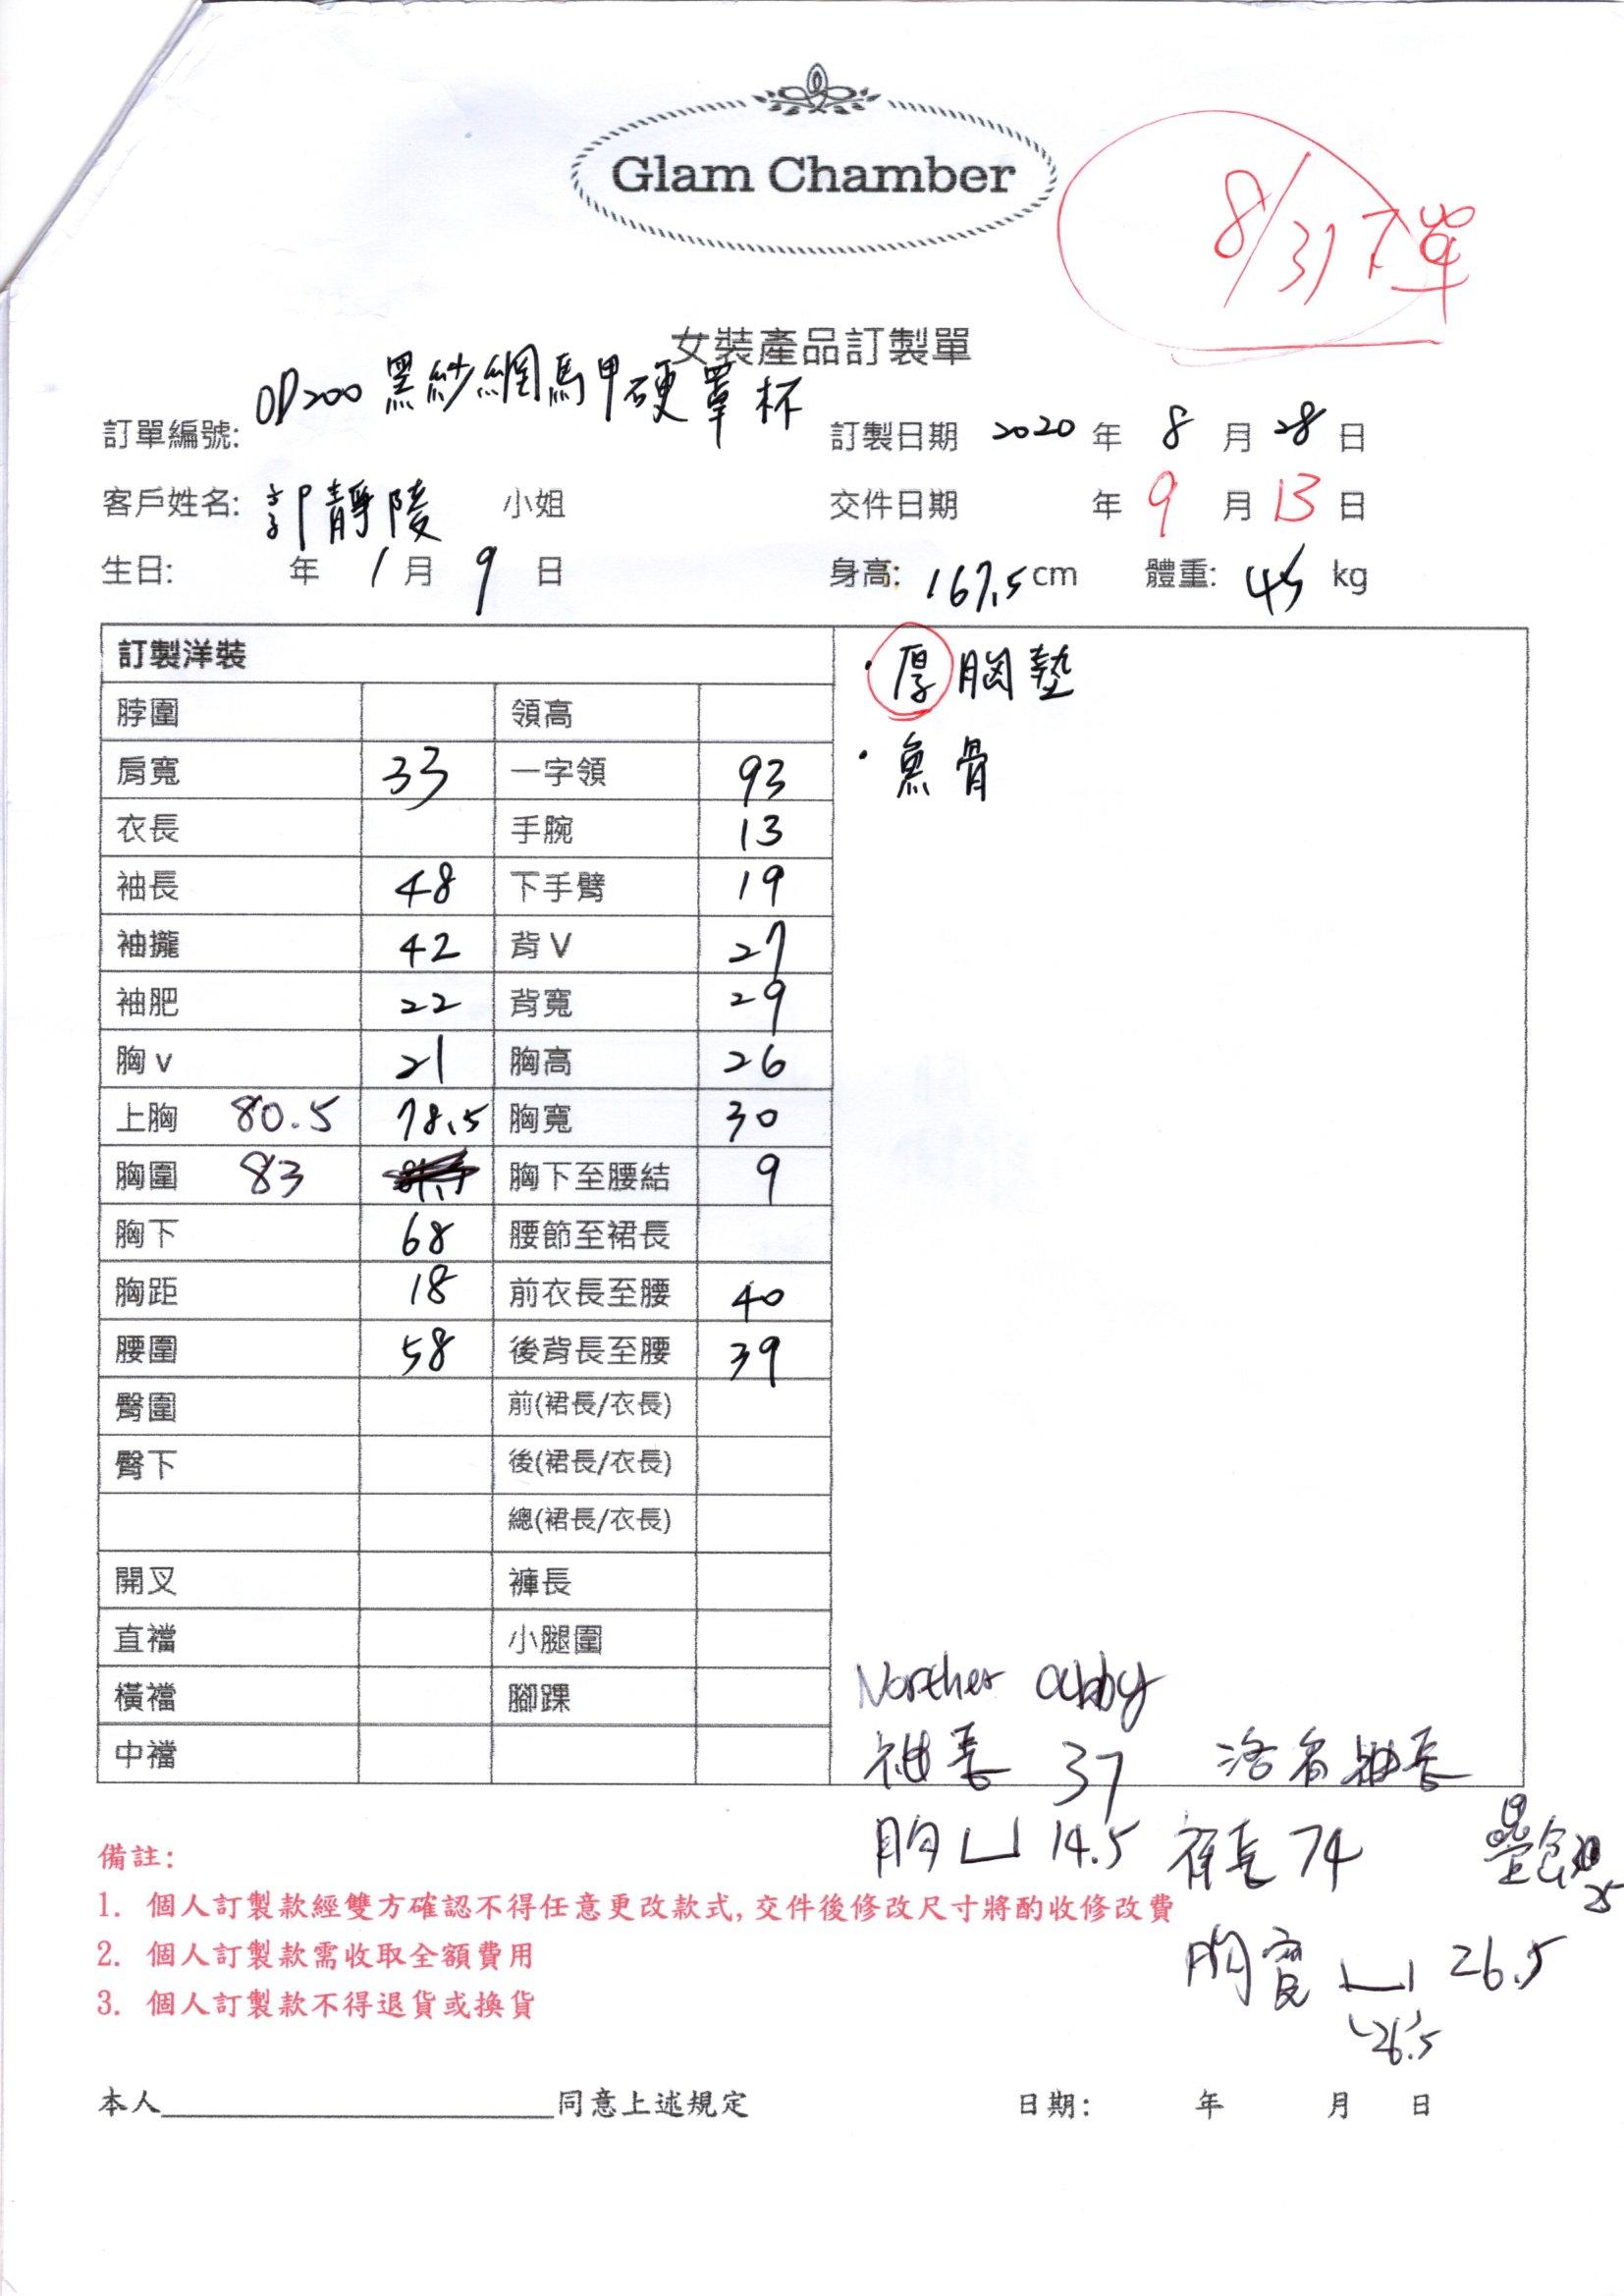 Glam Chamber
8/31下單
女裝產品訂製單
訂單編號: OP200 黑紗網馬甲硬罩杯 訂製日期 2020 年 8 月 28 日
客戶姓名: 郭靜陵 小姐 交件日期 年 9 月 13 日
生日: 年 1 月 9 日 身高: 167.5 cm 體重: 45 kg
訂製洋裝
・厚胸墊
・魚骨
脖圍 領高
肩寬 33 一字領 93
衣長 手腕 13
袖長 48 下手臂 19
袖攏 42 背 V 27
袖肥 22 背寬 29
胸 v 21 胸高 26
上胸 80.5 78.5 胸寬 30
胸圍 83 胸下至腰結 9
胸下 68 腰節至裙長
胸距 18 前衣長至腰 40
腰圍 58 後背長至腰 39
臀圍 前(裙長/衣長)
臀下 後(裙長/衣長)
總(裙長/衣長)
開叉 褲長
直襠 小腿圍
橫襠 腳踝
中襠
Norther abby
袖長 37 袖長
胸凵 14.5 裙長 74 19
25
胸寬 凵 26.5
26.5
備註:
1. 個人訂製款經雙方確認不得任意更改款式, 交件後修改尺寸將酌收修改費
2. 個人訂製款需收取全額費用
3. 個人訂製款不得退貨或換貨
本人____________________同意上述規定 日期: 年 月 日